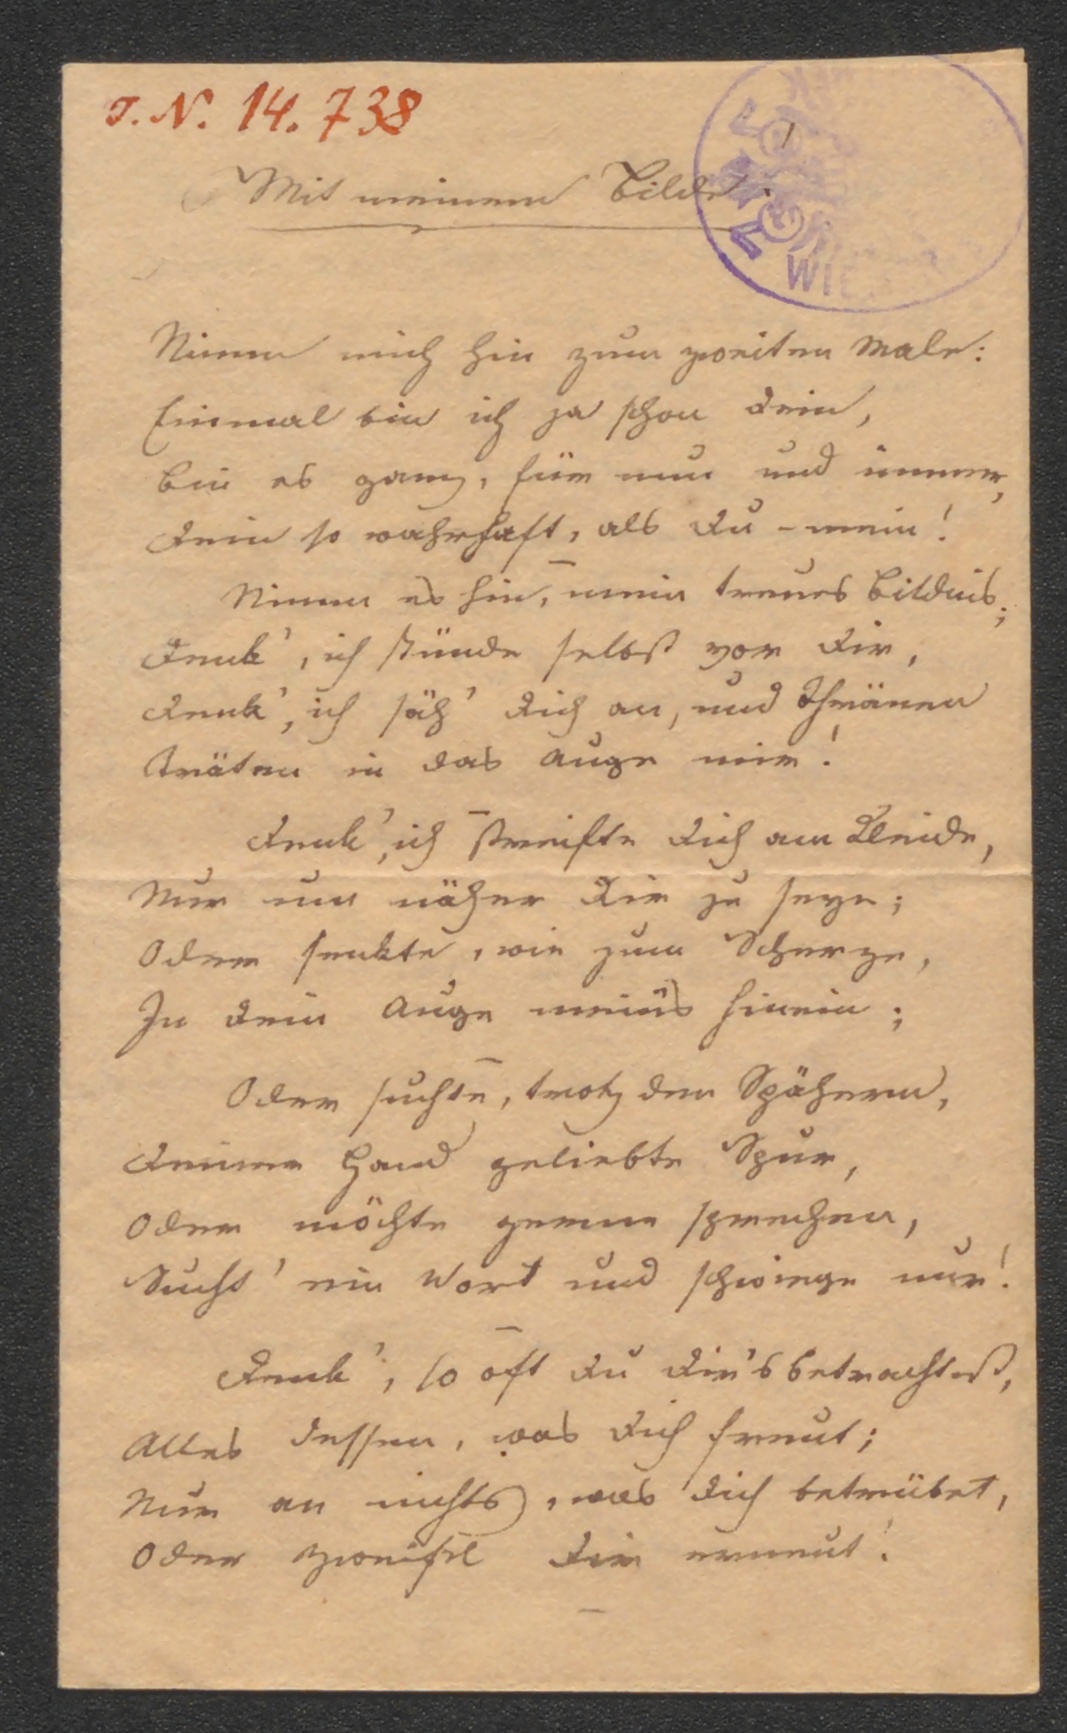 J. N. 14.738
1
Mit meinem Bilde.
WIE
Nimm mich hin zum zweiten Male:
Einmal bin ich ja schon dein,
Bin es ganz, für nun und immer,
Dein so wahrhaft, als du – mein!
Nimm es hin, mein treues Bildnis;
Denk', ich stünde selbst vor dir,
Denk', ich säh' dich an, und Thränen
Träten in das Auge mir!
Denk', ich streifte dich am Kleide,
Nur um näher dir zu seyn;
Oder senkte, wie zum Scherze,
In dein Auge meins hinein;
Oder suchte, trotz den Spähern,
Deiner Hand geliebte Spur,
Oder möchte gerne sprechen,
Sucht' ein Wort und schwiege nur!
Denk', so oft du dir's betrachtest,
Alles dessen, was dich freut;
Nur an nichts, was dich betrübet,
Oder Zweifel dir erneut!